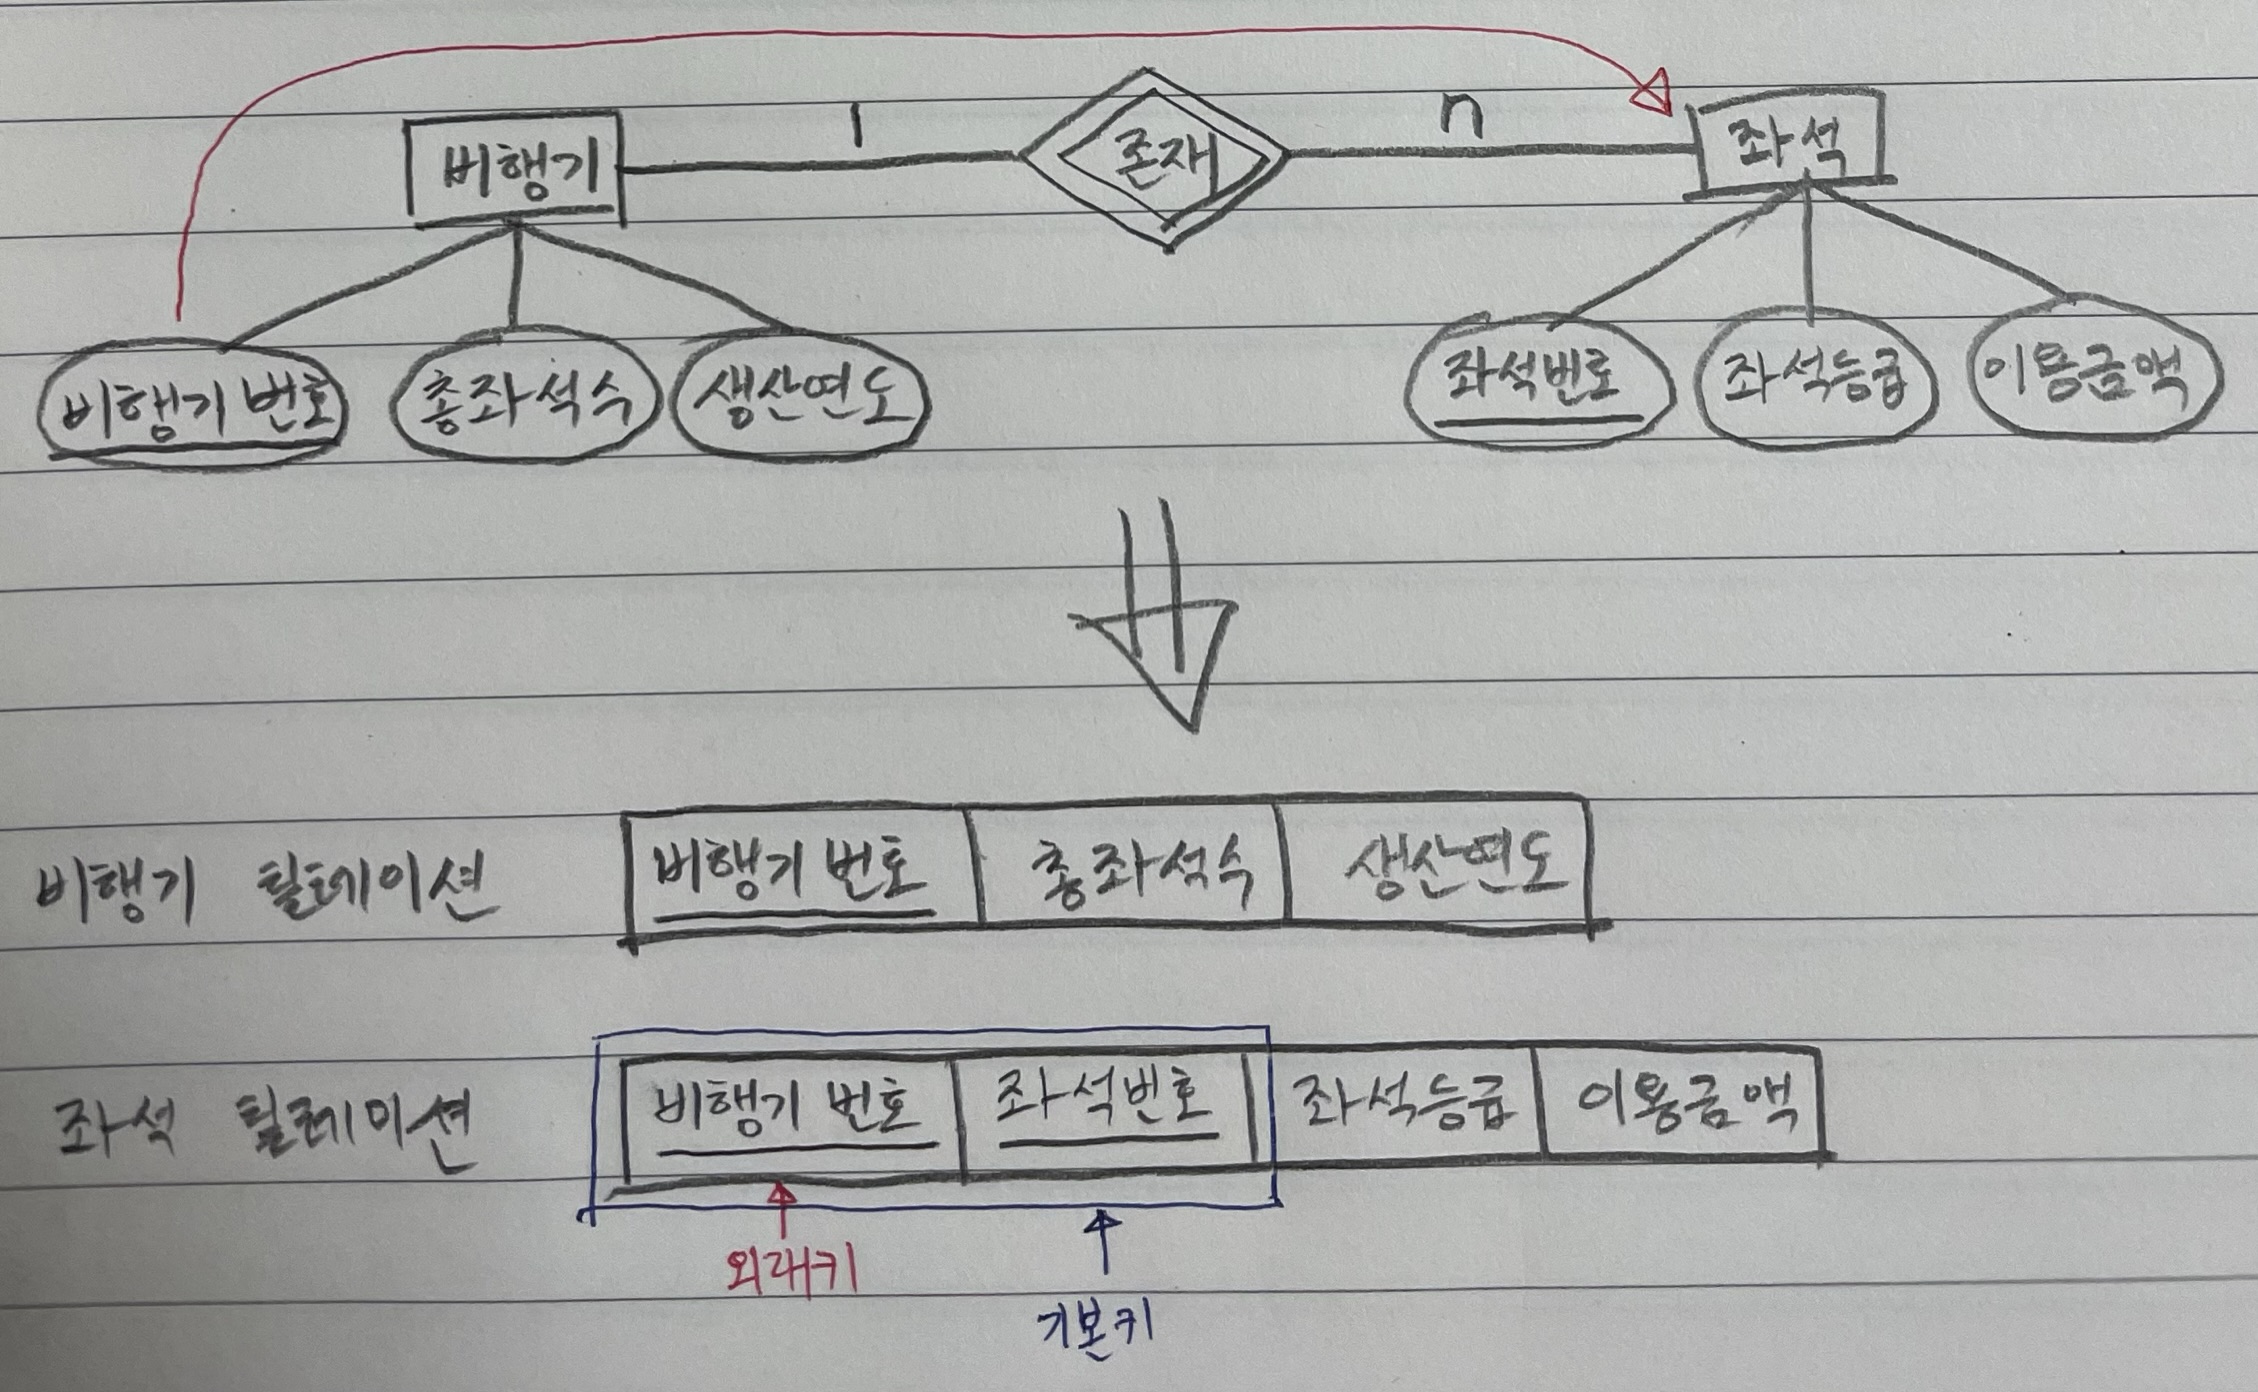 비행기 1 존재 n 좌석
비행기 번호 총좌석수 생산연도 좌석번호 좌석등급 이용금액
비행기 릴레이션 비행기 번호 총좌석수 생산연도
좌석 릴레이션 비행기 번호 좌석번호 좌석등급 이용금액
외래키
기본키